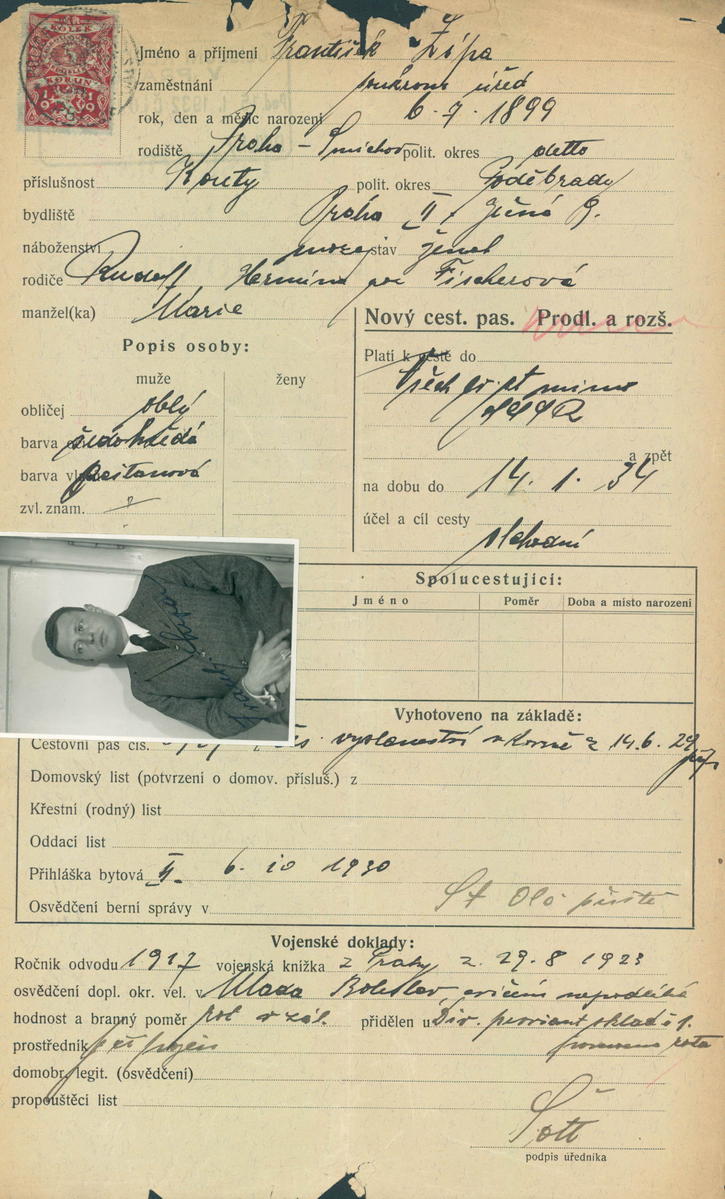 KOLEK
Jméno a přijmení František Zípa
zaměstnání soukrom úřed
rok, den a měsíc narození 6. 7. 1899
rodiště Praha - Smíchov polit. okres detto
příslušnost Kouty polit. okres Poděbrady
bydliště Praha II, Ječná 9.
náboženství stav ženat
rodiče Rudolf Hermína Fischerová
manžel(ka) Marie
Nový cest. pas. Prodl. a rozš.
Popis osoby:
Platí k cestě do
muže ženy
všech ev. st mimo
obličej oblý
SSSR
barva šedohnědá
a zpět
barva kaštanová
na dobu do 14. 1. 34
zvl. znam.
účel a cíl cesty
obchodní
Spolucestující:
Jméno Poměr Doba a místo narození
Vyhotoveno na základě:
Cestovní pas čís. vyslanectví v 14.6.
Domovský list (potvrzení o domov. přísluš.) z
Křestní (rodný) list
Oddací list
Přihláška bytová II. 6. 10 1930
Osvědčení berní správy v
Vojenské doklady:
Ročník odvodu 1917 vojenská knížka z Prahy z. 29. 8 1923
osvědčení dopl. okr. vel. v Mladá Boleslav, cvičení nepodléhá
hodnost a branný poměr v zál. přidělen u Div. proviant sklad č 1.
prostředník rota
domobr. legit. (osvědčení)
propouštěcí list
podpis úředníka